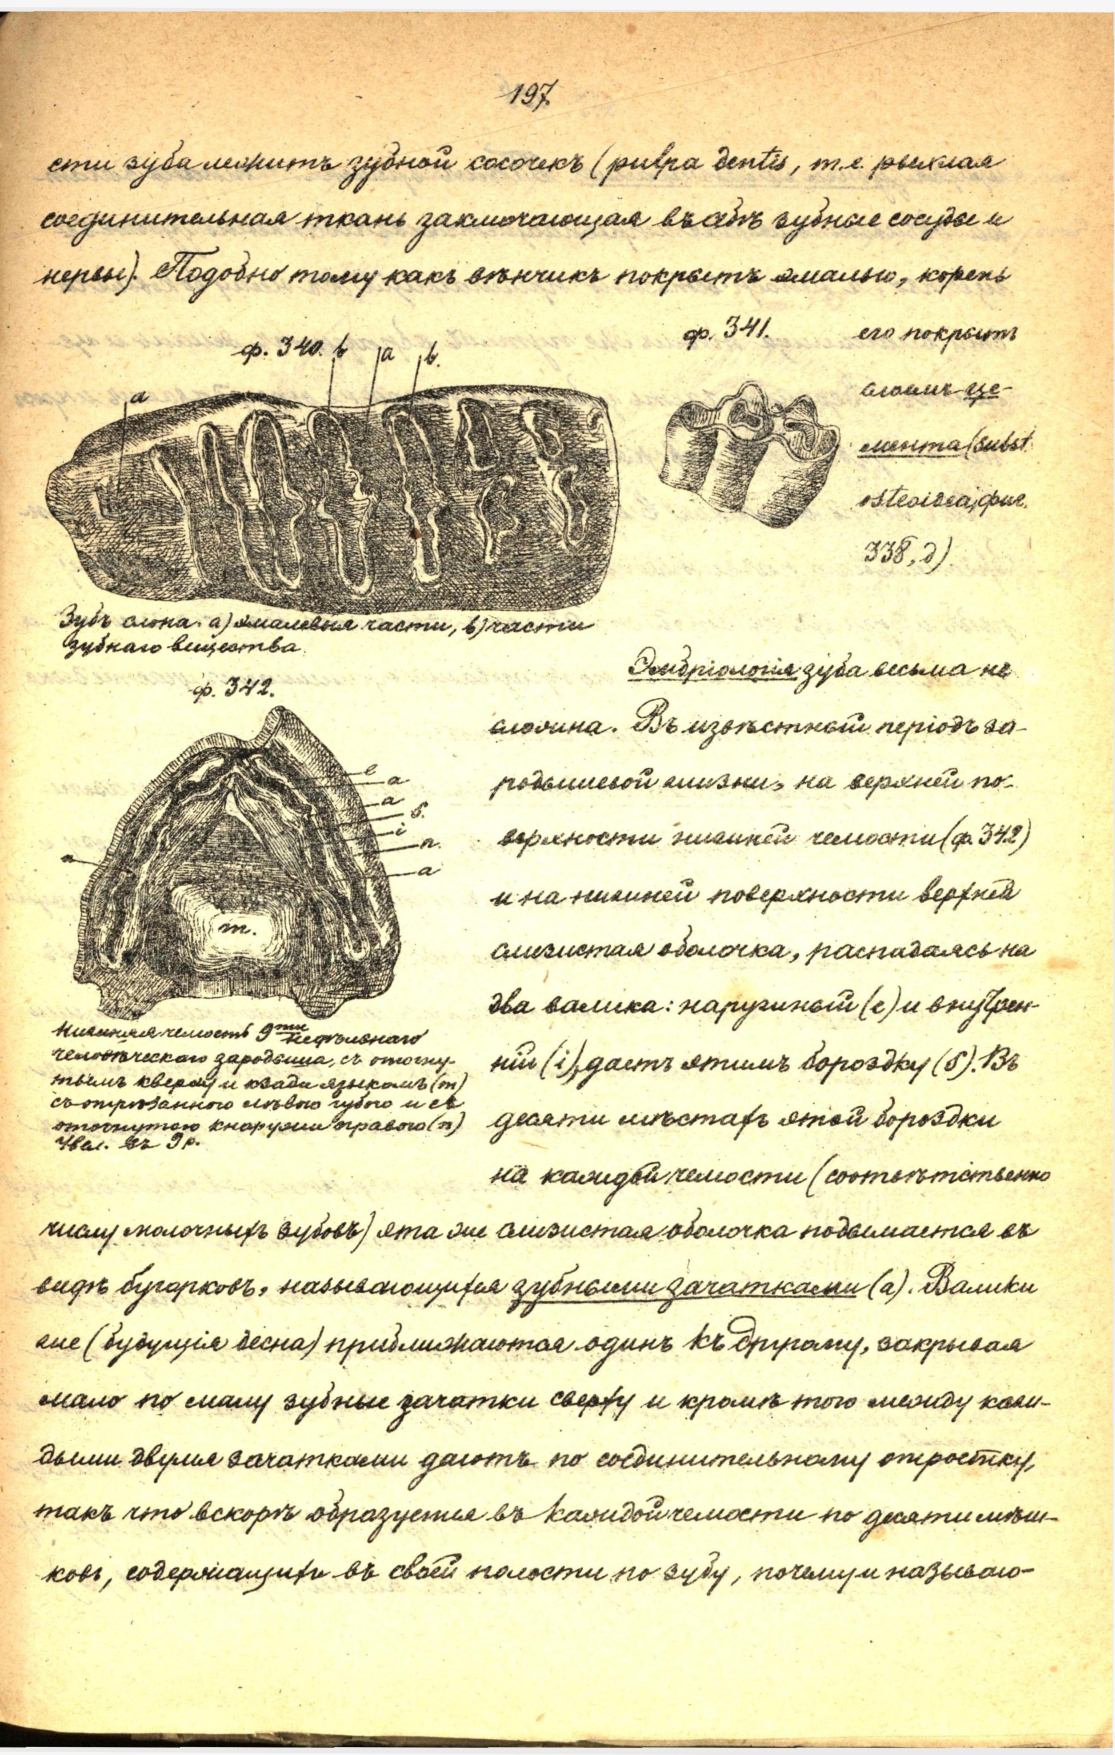 197.
сти зуба лежитъ зубной сосочекъ (pulpa dentis, т.е. рыхлая
соединительная ткань заключающая въ себѣ зубные сосуды и
нервы). Подобно тому какъ вѣнчикъ покрытъ эмалью, корень
его покрытъ
слоемъ це-
мента (subst.
osteoidea, фиг.
338, д)
ф. 340.
b
a
b.
a
ф. 341.
Зубъ слона. а) эмалевыя части, в) части
зубнаго вещества.
Эмбріологія зуба весьма не
сложна. Въ извѣстный періодъ за-
родышевой жизни, на верхней по-
верхности нижней челюсти (ф. 342)
и на нижней поверхности верхней
слизистая оболочка, распадаясь на
два валика: наружный (е) и внутрен-
ній (i), даетъ этимъ бороздку (б). Въ
десяти мѣстахъ этой бороздки
на каждой челюсти (соотвѣтственно
ф. 342.
e
a
a
б.
i
n.
a
n
m.
Нижняя челюсть 9ти недѣльнаго
человѣческаго зародыша, съ отогну-
тымъ кверху и кзади языкомъ (m)
съ отрѣзанною лѣвою губою и съ
отогнутою кнаружи правою (n)
Увел. въ 9 р.
числу молочныхъ зубовъ) эта же слизистая оболочка подымается въ
видѣ бугорковъ, называющихся зубными зачатками (а). Валики
же (будущія десна) приближаются одинъ къ другому, закрывая
мало по малу зубные зачатки сверху и кромѣ того между каж-
дыми двумя зачатками даютъ по соединительному отростку,
такъ что вскорѣ образуется въ каждой челюсти по десяти мѣш-
ковъ, содержащихъ въ своей полости по зубу, почему и называю-